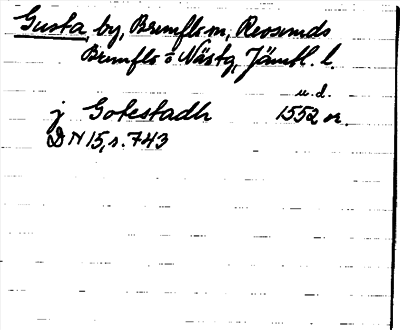 Gusta, by, Brunflo sn, Revsunds
Brunflo o Näskg, Jämtl. l.
u.d.
j Gotestadh 1552 or.
DN 15, s. 743